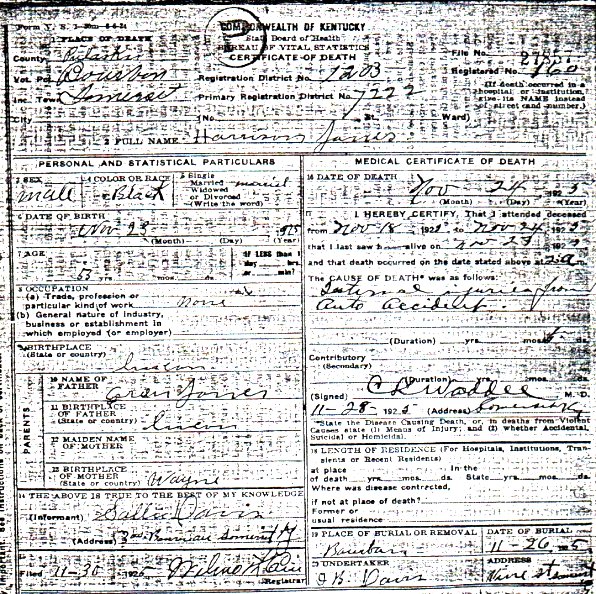 COMMONWEALTH OF KENTUCKY
State Board of Health
BUREAU OF VITAL STATISTICS
CERTIFICATE OF DEATH
PLACE OF DEATH
County Pulaski
Vot. Pct. Bourbon
Inc. Town Somerset
City
Registration District No. 1203
Primary Registration District No. 7222
(No. St. Ward)
File No.
Registered No. 160
(If death occurred in a
hospital or institution,
give its NAME instead
of street and number.)
2 FULL NAME Harrison Jones
PERSONAL AND STATISTICAL PARTICULARS
3 SEX male
4 COLOR OR RACE Black
5 Single
Married
Widowed
or Divorced
(Write the word)
married
6 DATE OF BIRTH
Nov 23
(Month) (Day) (Year)
7 AGE
53 yrs. mos. ds.
If LESS than 1
day hrs.
or min.
8 OCCUPATION
(a) Trade, profession or
particular kind of work none
(b) General nature of industry,
business or establishment in
which employed (or employer)
9 BIRTHPLACE
(State or country)
PARENTS
10 NAME OF
FATHER
Jones
11 BIRTHPLACE
OF FATHER
(State or country)
12 MAIDEN NAME
OF MOTHER
13 BIRTHPLACE
OF MOTHER
(State or country) Wayne
14 THE ABOVE IS TRUE TO THE BEST OF MY KNOWLEDGE
(Informant) Sallie Davis
(Address) Somerset Ky
15
Filed 11-30 1925
Registrar
MEDICAL CERTIFICATE OF DEATH
16 DATE OF DEATH
Nov 24 1925
(Month) (Day) (Year)
17 I HEREBY CERTIFY, That I attended deceased
from Nov 18 1925 to Nov 24 1925
that I last saw h alive on Nov 23 1925
and that death occurred on the date stated above at 2 a m.
The CAUSE OF DEATH* was as follows:
Internal injuries from
Auto Accident
(Duration) yrs. mos. ds.
Contributory
(Secondary)
(Duration) yrs. mos. ds.
(Signed) M. D.
11-28- 1925 (Address) Somerset Ky
*State the Disease Causing Death, or, in deaths from Violent
Causes state (1) Means of Injury; and (2) whether Accidental,
Suicidal or Homicidal.
18 LENGTH OF RESIDENCE (For Hospitals, Institutions, Tran-
sients or Recent Residents)
at place In the
of death yrs. mos. ds. State yrs. mos. ds.
Where was disease contracted,
if not at place of death?
Former or
usual residence
19 PLACE OF BURIAL OR REMOVAL
Bourbon
DATE OF BURIAL
11-26 1925
20 UNDERTAKER
J B Davis
ADDRESS